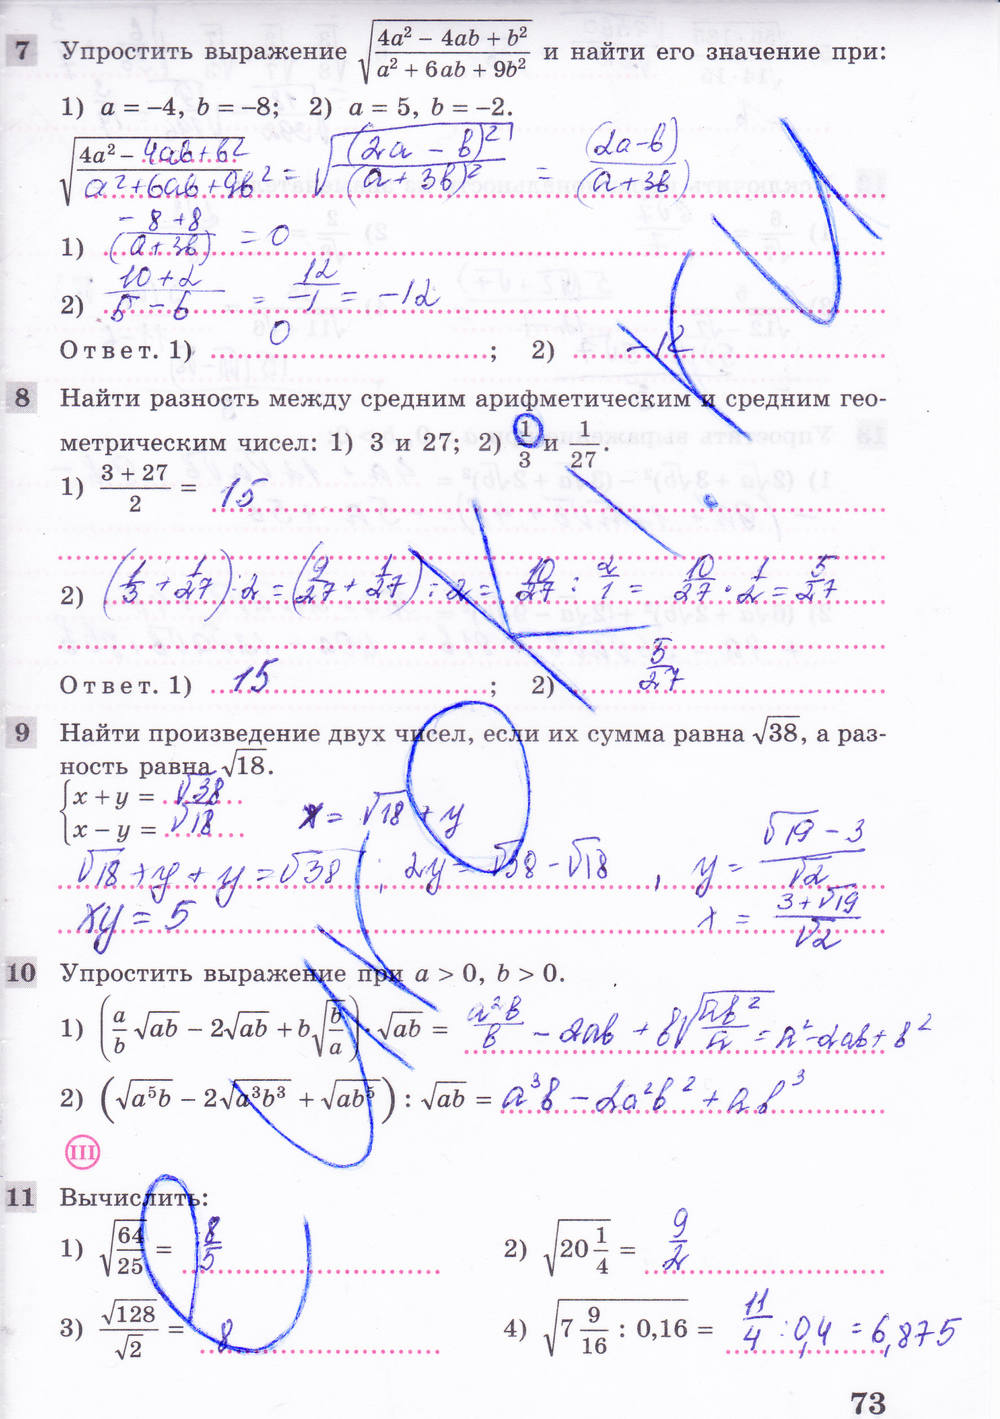 7 Упростить выражение √((4a² − 4ab + b²)/(a² + 6ab + 9b²)) и найти его значение при:
1) a = −4, b = −8; 2) a = 5, b = −2.
√((4a² − 4ab + b²)/(a² + 6ab + 9b²)) = √((2a − b)²/(a + 3b)²) = (2a − b)/(a + 3b)
1) (−8 + 8)/(a + 3b) = 0
2) (10 + 2)/(5 − 6) = 12/−1 = −12
Ответ. 1) 0; 2) −12
8 Найти разность между средним арифметическим и средним гео-
метрическим чисел: 1) 3 и 27; 2) 1/3 и 1/27.
1) (3 + 27)/2 = 15
2) (1/3 + 1/27) : 2 = (9/27 + 1/27) : 2 = 10/27 : 2/1 = 10/27 · 1/2 = 5/27
Ответ. 1) 15; 2) 5/27
9 Найти произведение двух чисел, если их сумма равна √38, а раз-
ность равна √18.
x + y = √38
x − y = √18 x = √18 + y
√18 + y + y = √38; 2y = √38 − √18, y = (√19 − 3)/√2
xy = 5 x = (3 + √19)/√2
10 Упростить выражение при a > 0, b > 0.
1) (a/b √ab − 2√ab + b√(b/a)) · √ab = a²b/b − 2ab + b√(ab²/a) = a² − 2ab + b²
2) (√a⁵b − 2√a³b³ + √ab⁵) : √ab = a³b − 2a²b² + ab³
III
11 Вычислить:
1) √(64/25) = 8/5 2) √(20 1/4) = 9/2
3) √128/√2 = 8 4) √(7 9/16 : 0,16) = 11/4 : 0,4 = 6,875
73